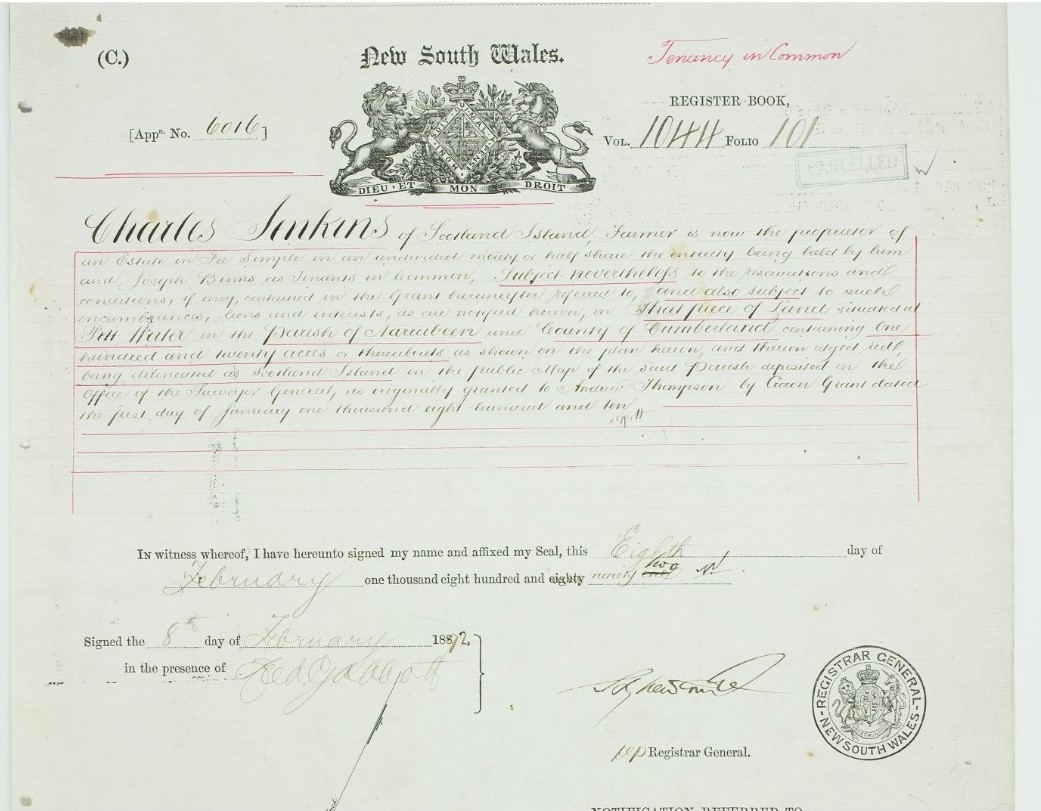 (C.)
New South Wales.
Tenancy in Common
REGISTER BOOK,
[Appn. No. 6016]
Vol. 1044 Folio 101
CANCELLED
DIEU ET MON DROIT
Charles Jenkins of Scotland Island, Farmer is now the proprietor of
an Estate in Fee Simple in an undivided moiety or half share the entirety being held by him
and Joseph Benns as Tenants in Common, Subject nevertheless to the reservations and
conditions, if any, contained in the Grant hereinafter referred to, and also subject to such
encumbrances, liens and interests, as are notified hereon, in That piece of Land situated at
Pitt Water in the Parish of Narrabeen and County of Cumberland containing One
hundred and twenty acres or thereabouts as shown on the plan hereon, and therein edged red,
being delineated as Scotland Island in the public Map of the said Parish deposited in the
Office of the Surveyor General, as originally granted to Andrew Thompson by Crown Grant dated
the first day of January one thousand eight hundred and ten
In witness whereof, I have hereunto signed my name and affixed my Seal, this Eighth day of
February one thousand eight hundred and eighty ninety two
Signed the 8th day of February 1892
in the presence of
Registrar General.
REGISTRAR GENERAL
NEW SOUTH WALES
NOTIFICATION REFERRED TO